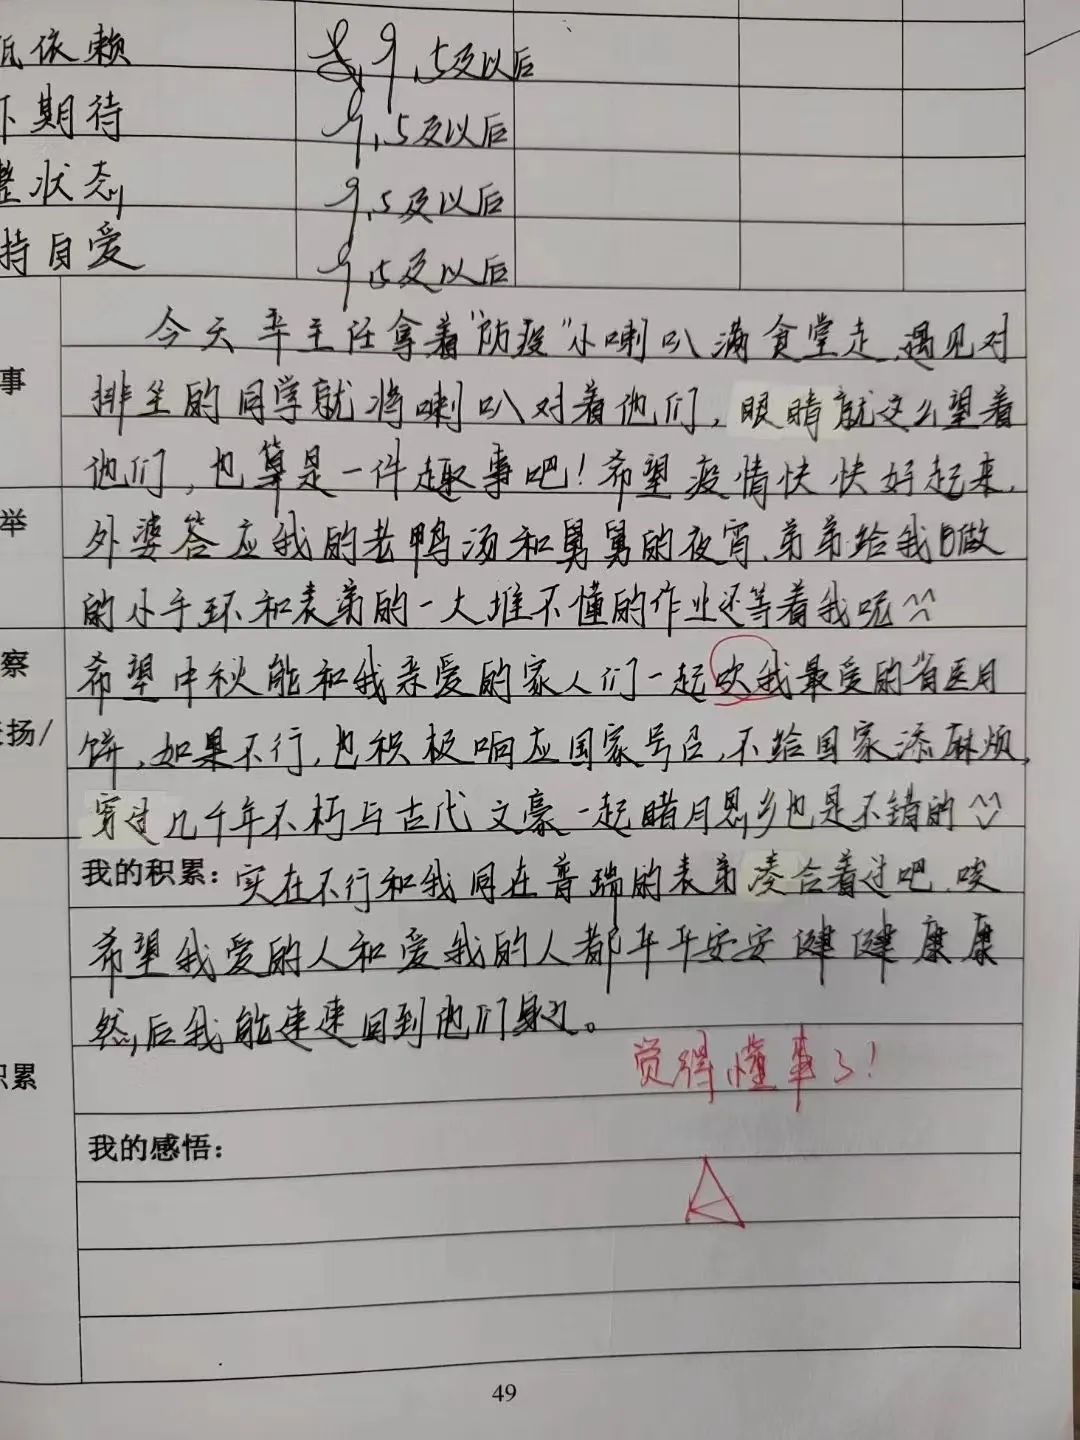 低依赖 9.5及以后
下期待 9.5及以后
整状态 9.5及以后
持自爱 9.5及以后
今天辛主任拿着“防疫”小喇叭满食堂走，遇见对
事
排坐的同学就将喇叭对着他们，眼睛就这么望着
他们，也算是一件趣事吧！希望疫情快快好起来，
举
外婆答应我的老鸭汤和舅舅的夜宵、弟弟给我做
的小手环和表弟的一大堆不懂的作业还等着我呢^^
察
希望中秋能和我亲爱的家人们一起吹我最爱的省医月
扬/
饼，如果不行，也积极响应国家号召，不给国家添麻烦，
穿过几千年不朽与古代文豪一起睹月思乡也是不错的
我的积累：实在不行和我同在普瑞的表弟凑合着过吧，唉
希望我爱的人和爱我的人都平平安安健健康康
然后我能速速回到他们身边。
积累
觉得懂事了！
我的感悟：
A
49